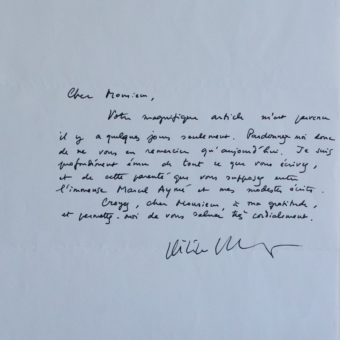 Cher Monsieur,
Votre magnifique article m'est parvenu
il y a quelques jours seulement. Pardonnez-moi donc
de ne vous en remercier qu'aujourd'hui. Je suis
profondément ému de tout ce que vous écrivez,
et de cette parenté que vous supposez entre
l'immense Marcel Aymé et mes modestes écrits.
Croyez, cher Monsieur, à ma gratitude,
et permettez-moi de vous saluer très cordialement.